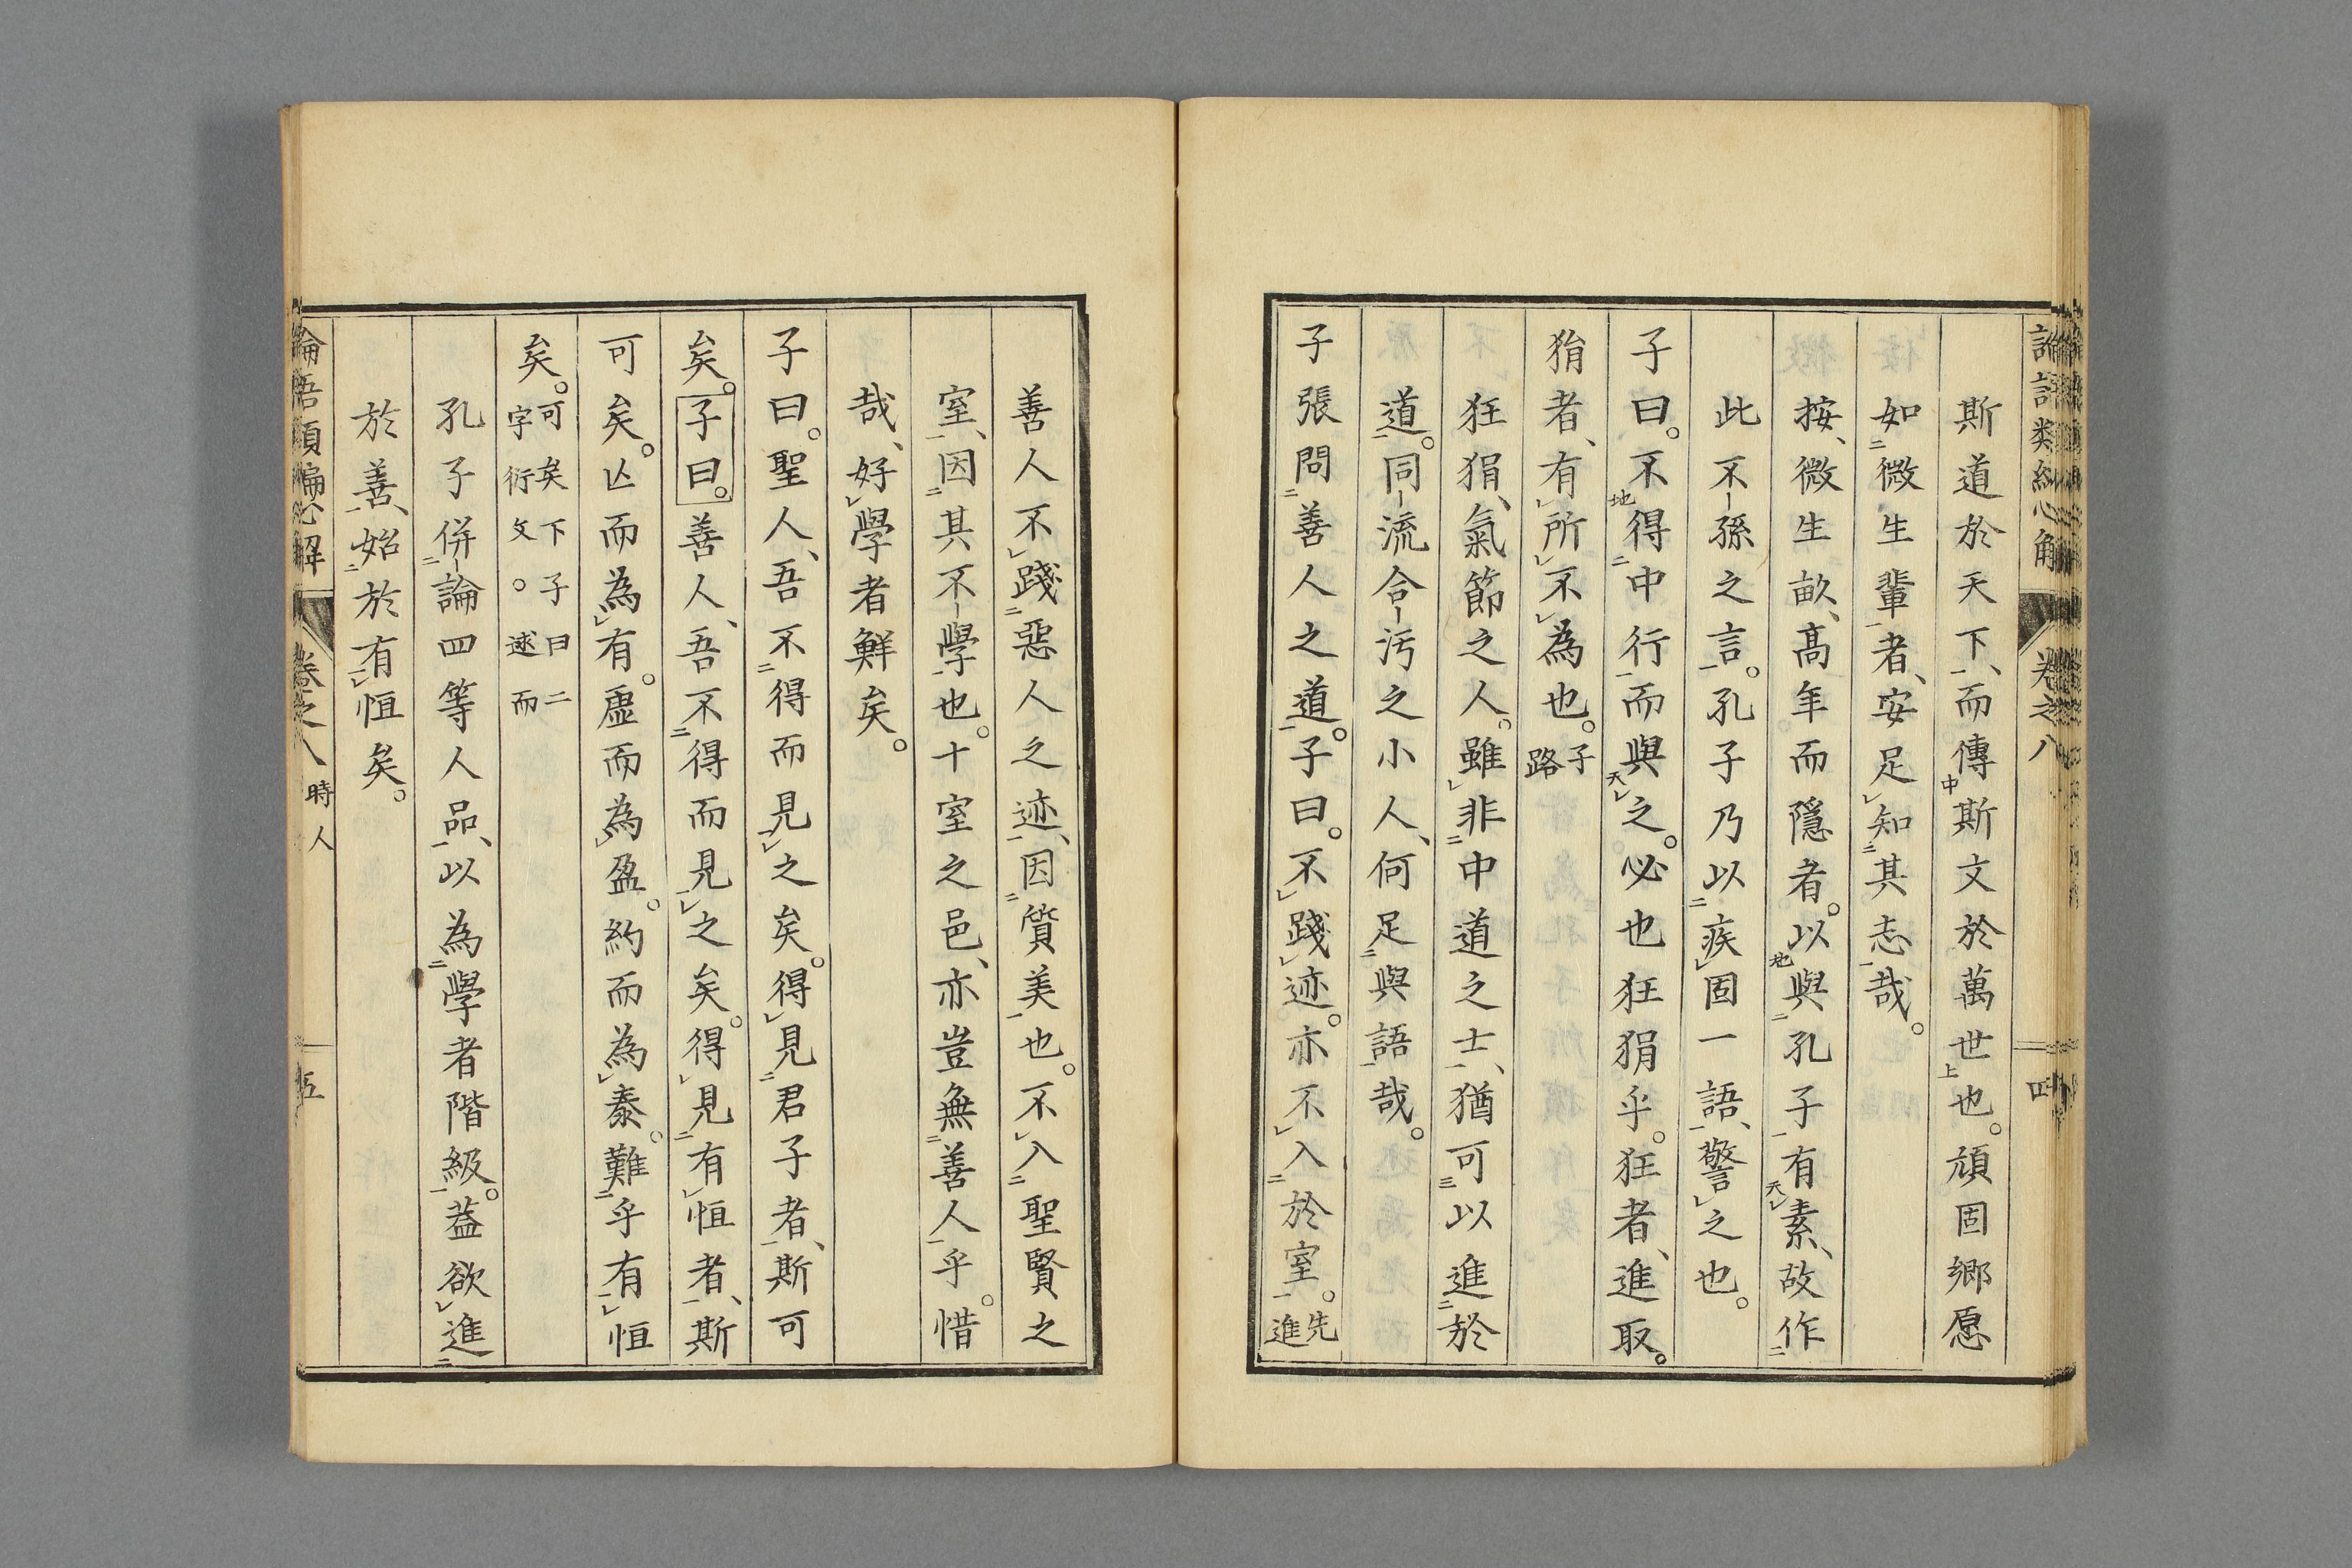 斯道於天下、而傳斯文於萬世也。頑固鄉愿
如微生輩者、安足知其志哉。
按、微生畝、高年而隱者。以與孔子有素、故作
此不孫之言。孔子乃以疾固一語、警之也。
子曰。不得中行而與之。必也狂狷乎。狂者、進取。
狷者、有所不為也。子路
狂狷、氣節之人。雖非中道之士、猶可以進於
道。同流合污之小人、何足與語哉。
子張問善人之道。子曰。不踐迹。亦不入於室。先進
善人不踐惡人之迹、因質美也。不入聖賢之
室、因其不學也。十室之邑、亦豈無善人乎。惜
哉、好學者鮮矣。
子曰。聖人、吾不得而見之矣。得見君子者、斯可
矣。子曰。善人、吾不得而見之矣。得見有恒者、斯
可矣。亾而為有。虛而為盈。約而為泰。難乎有恒
矣。可矣下子曰二字衍文。逑而
孔子併論四等人品、以為學者階級。蓋欲進
於善、始於有恒矣。
卷之八 時人 五
卷之八 四